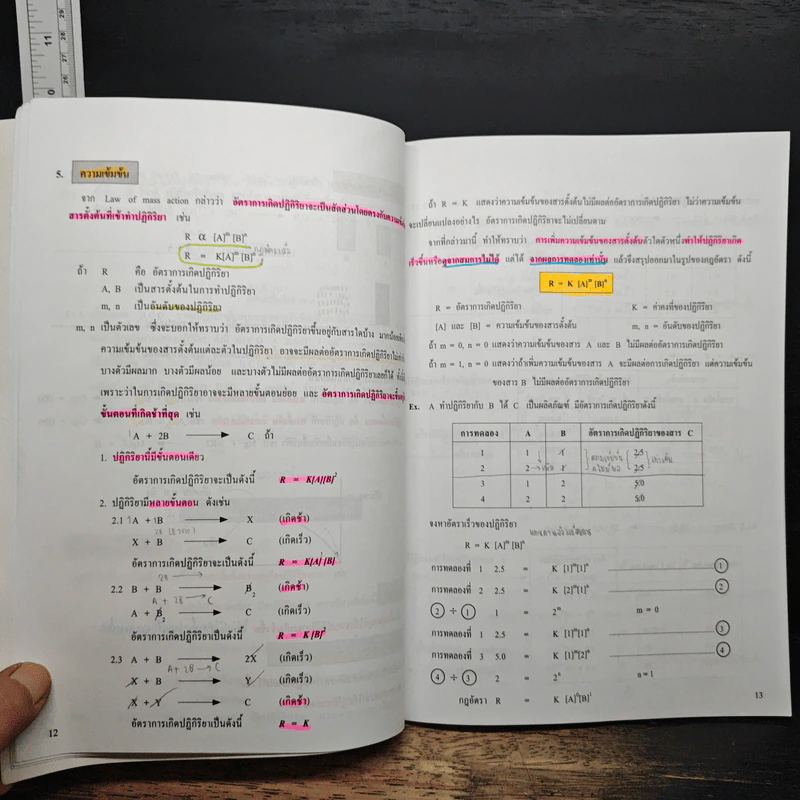 5. ความเข้มข้น
จาก Law of mass action กล่าวว่า อัตราการเกิดปฏิกิริยาจะเป็นสัดส่วนโดยตรงกับความเข้มข้น
สารตั้งต้นที่เข้าทำปฏิกิริยา เช่น
R α [A]ᵐ [B]ⁿ
R = K[A]ᵐ [B]ⁿ
ถ้า R คือ อัตราการเกิดปฏิกิริยา
A, B เป็นสารตั้งต้นในการทำปฏิกิริยา
m, n เป็นอันดับของปฏิกิริยา
m, n เป็นตัวเลข ซึ่งจะบอกให้ทราบว่า อัตราการเกิดปฏิกิริยาขึ้นอยู่กับสารใดบ้าง
ความเข้มข้นของสารตั้งต้นแต่ละตัวในปฏิกิริยา อาจจะมีผลต่ออัตราการเกิดปฏิกิริยา
บางตัวมีผลมาก บางตัวมีผลน้อย และบางตัวไม่มีผลต่ออัตราการเกิดปฏิกิริยาเลยก็ได้
เพราะว่าในการเกิดปฏิกิริยาอาจจะมีหลายขั้นตอนย่อย และ อัตราการเกิดปฏิกิริยาจะขึ้น
ขั้นตอนที่เกิดช้าที่สุด เช่น
A + 2B → C ถ้า
1. ปฏิกิริยานี้มีขั้นตอนเดียว
อัตราการเกิดปฏิกิริยาจะเป็นดังนี้ R = K[A][B]²
2. ปฏิกิริยามีหลายขั้นตอน ดังเช่น
2.1 A + B → X (เกิดช้า)
X + B → C (เกิดเร็ว)
อัตราการเกิดปฏิกิริยาจะเป็นดังนี้ R = K[A]¹[B]¹
2B →
2.2 B + B → B₂ (เกิดช้า)
A + 2B → C
A + B₂ → C (เกิดเร็ว)
อัตราการเกิดปฏิกิริยาเป็นดังนี้ R = K[B]²
2.3 A + B → 2X (เกิดเร็ว)
A + 2B → C
X + B → Y (เกิดเร็ว)
X + Y → C (เกิดช้า)
อัตราการเกิดปฏิกิริยาเป็นดังนี้ R = K
12
ถ้า R = K แสดงว่าความเข้มข้นของสารตั้งต้นไม่มีผลต่ออัตราการเกิดปฏิกิริยา ไม่ว่าความเข้มข้น
จะเปลี่ยนแปลงอย่างไร อัตราการเกิดปฏิกิริยาจะไม่เปลี่ยนตาม
จากที่กล่าวมานี้ ทำให้ทราบว่า การเพิ่มความเข้มข้นของสารตั้งต้นตัวใดตัวหนึ่งทำให้ปฏิกิริยาเกิด
เร็วขึ้นหรือดูจากสมการไม่ได้ แต่ได้ จากผลการทดลองเท่านั้น แล้วจึงสรุปออกมาในรูปของกฎอัตรา ดังนี้
R = K [A]ᵐ [B]ⁿ
R = อัตราการเกิดปฏิกิริยา K = ค่าคงที่ของปฏิกิริยา
[A] และ [B] = ความเข้มข้นของสารตั้งต้น m, n = อันดับของปฏิกิริยา
ถ้า m = 0, n = 0 แสดงว่าความเข้มข้นของสาร A และ B ไม่มีผลต่ออัตราการเกิดปฏิกิริยา
ถ้า m = 1, n = 0 แสดงว่าถ้าเพิ่มความเข้มข้นของสาร A จะมีผลต่อการเกิดปฏิกิริยา แต่ความเข้มข้น
ของสาร B ไม่มีผลต่ออัตราการเกิดปฏิกิริยา
Ex. A ทำปฏิกิริยากับ B ได้ C เป็นผลิตภัณฑ์ มีอัตราการเกิดปฏิกิริยาดังนี้
การทดลอง A B อัตราการเกิดปฏิกิริยาของสาร C
1 1 1 2.5
2 2 1 2.5
3 1 2 5.0
4 2 2 5.0
จงหาอัตราเร็วของปฏิกิริยา
R = K [A]ᵐ [B]ⁿ
การทดลองที่ 1 2.5 = K [1]ᵐ[1]ⁿ 1
การทดลองที่ 2 2.5 = K [2]ᵐ[1]ⁿ 2
2 ÷ 1 1 = 2ᵐ m = 0
การทดลองที่ 1 2.5 = K [1]ᵐ[1]ⁿ 3
การทดลองที่ 3 5.0 = K [1]ᵐ[2]ⁿ 4
4 ÷ 3 2 = 2ⁿ n = 1
กฎอัตรา R = K [A]⁰[B]¹
13